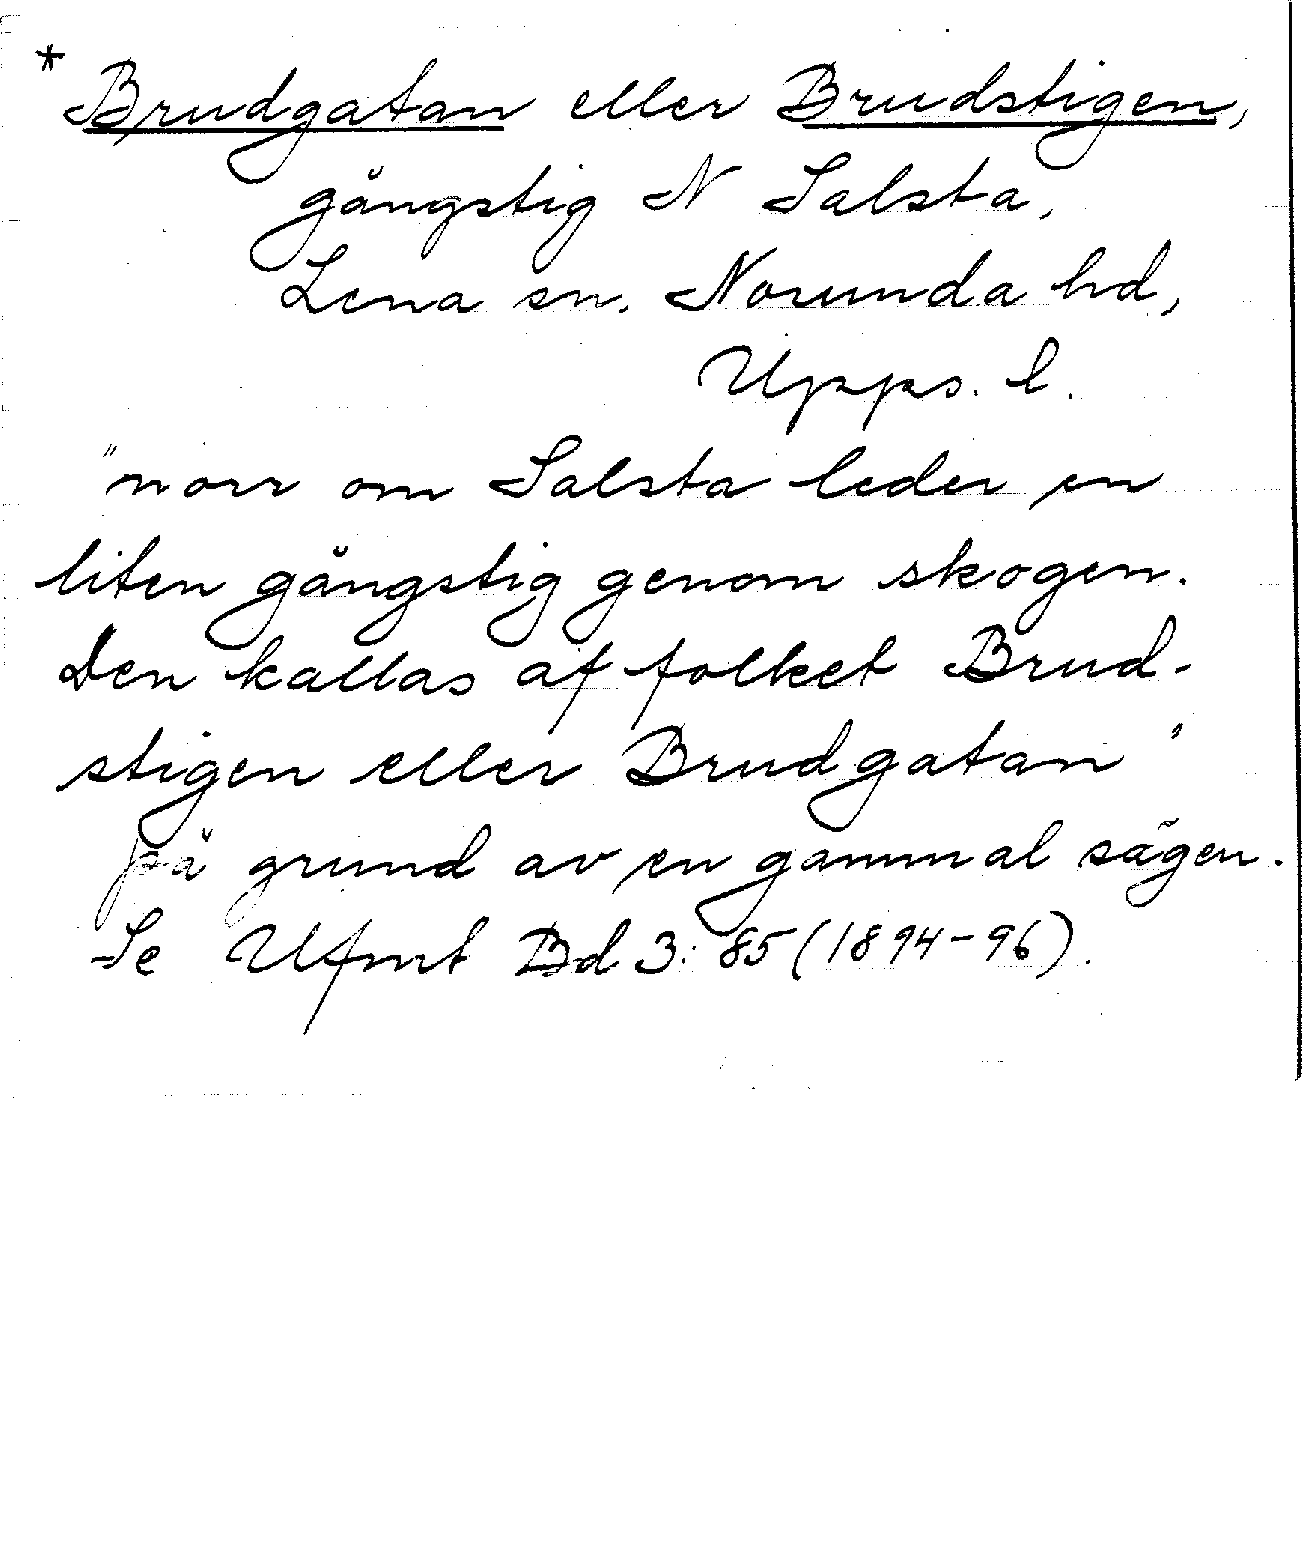 * Brudgatan eller Brudstigen,
gångstig N Salsta,
Lena sn. Norunda hd,
Upps. l.
"norr om Salsta leder en
liten gångstig genom skogen.
Den kallas af folket Brud-
stigen eller Brudgatan"
på grund av en gammal sägen.
Se Ufmt Bd 3: 85 (1894-96).